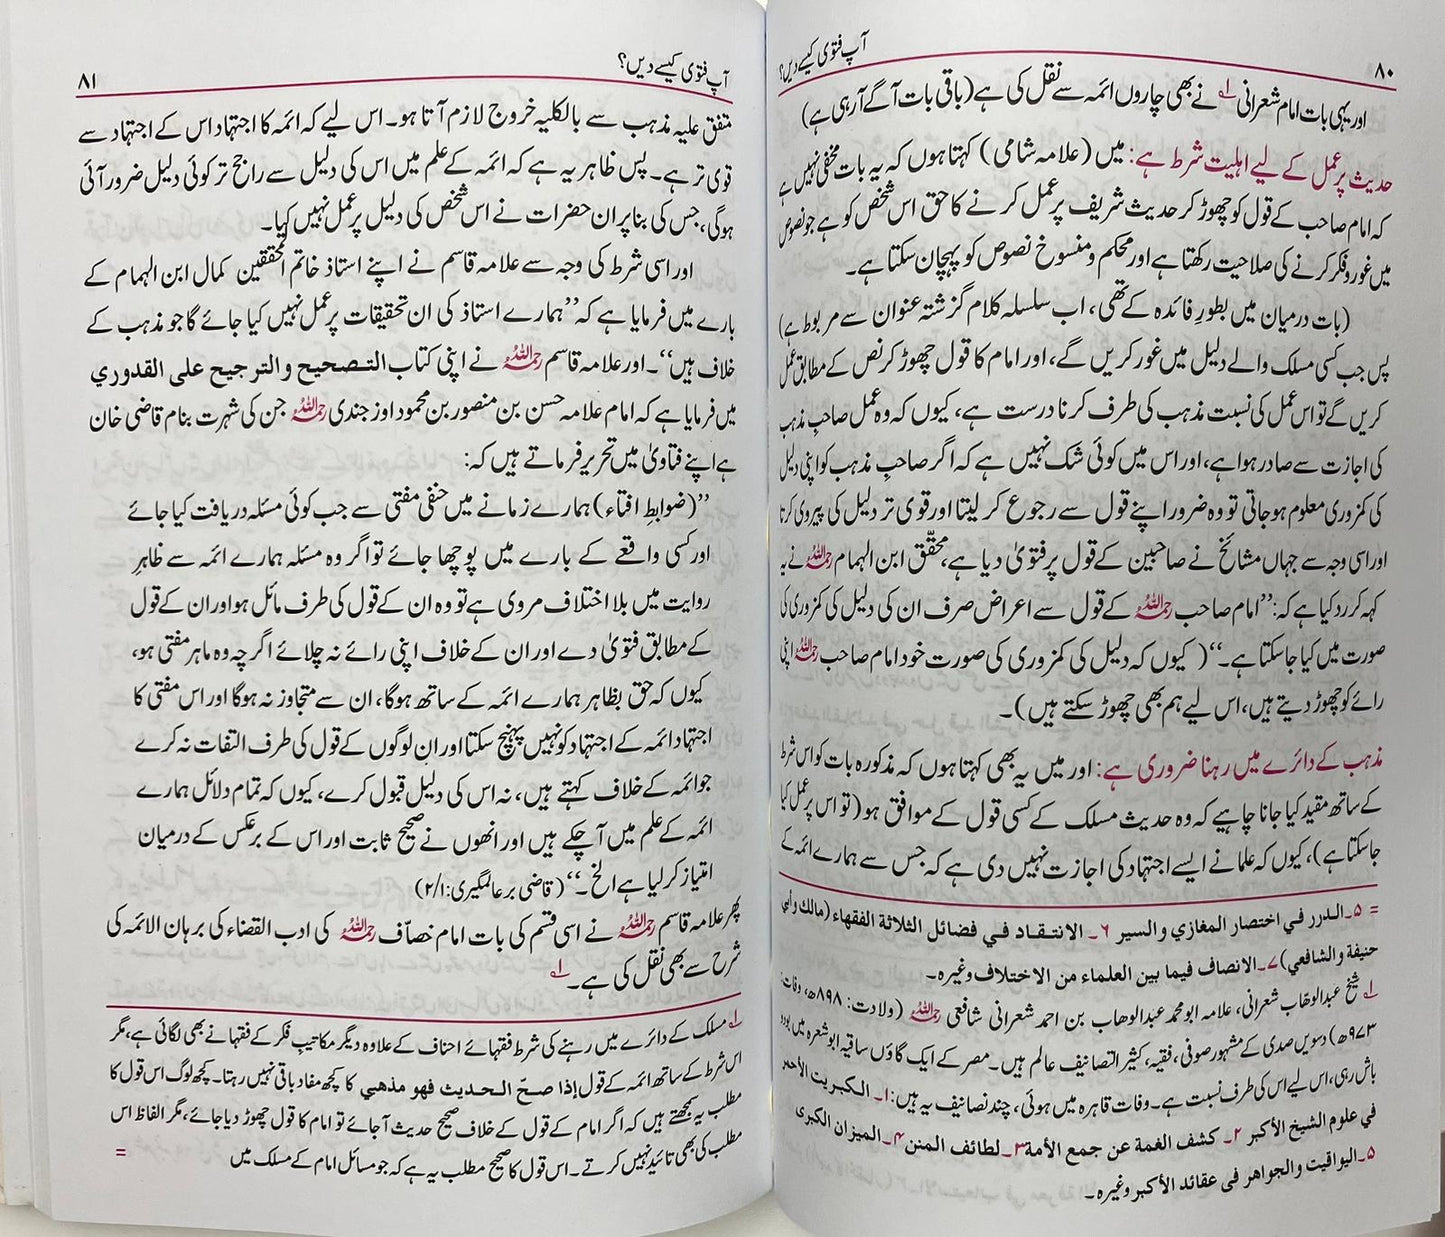 ۸۰
آپ فتوی کیسے دیں؟
اور یہی بات امام شعرانی ؎۱ نے بھی چاروں ائمہ سے نقل کی ہے (باقی بات آگے آرہی ہے)
حدیث پر عمل کے لیے اہلیت شرط ہے: میں (علامہ شامی) کہتا ہوں کہ یہ بات مخفی نہیں ہے
کہ امام صاحب کے قول کو چھوڑ کر حدیث شریف پر عمل کرنے کا حق اس شخص کو ہے جو نصوص
میں غور و فکر کرنے کی صلاحیت رکھتا ہے اور محکم و منسوخ نصوص کو پہچان سکتا ہے۔
(بات درمیان میں بطورِ فائدہ کے تھی، اب سلسلہ کلام گزشتہ عنوان سے مربوط ہے)
پس جب کسی مسلک والے دلیل میں غور کریں گے، اور امام کا قول چھوڑ کر نص کے مطابق عمل
کریں گے تو اس عمل کی نسبت مذہب کی طرف کرنا درست ہے، کیوں کہ وہ عمل صاحبِ مذہب
کی اجازت سے صادر ہوا ہے، اور اس میں کوئی شک نہیں ہے کہ اگر صاحبِ مذہب کو اپنی دلیل
کی کمزوری معلوم ہو جاتی تو وہ ضرور اپنے قول سے رجوع کر لیتا اور قوی تر دلیل کی پیروی کرتا
اور اسی وجہ سے جہاں مشائخ نے صاحبین کے قول پر فتویٰ دیا ہے، محقّق ابن الہمام رحمہ اللہ نے یہ
کہہ کر رد کیا ہے کہ: ”امام صاحب رحمہ اللہ کے قول سے اعراض صرف ان کی دلیل کی کمزوری کی
صورت میں کیا جا سکتا ہے۔“ (کیوں کہ دلیل کی کمزوری کی صورت خود امام صاحب رحمہ اللہ اپنی
رائے کو چھوڑ دیتے ہیں، اس لیے ہم بھی چھوڑ سکتے ہیں)۔
مذہب کے دائرے میں رہنا ضروری ہے: اور میں یہ بھی کہتا ہوں کہ مذکورہ بات کو اس شرط
کے ساتھ مقید کیا جانا چاہیے کہ وہ حدیث مسلک کے کسی قول کے موافق ہو (تو اس پر عمل کیا
جا سکتا ہے)، کیوں کہ علما نے ایسے اجتہاد کی اجازت نہیں دی ہے کہ جس سے ہمارے ائمہ کے
= ۵۔ الدرر في اختصار المغازي والسير ۶۔ الانتقاد في فضائل الثلاثة الفقهاء (مالك وأبي
حنيفة والشافعي) ۷۔ الانصاف فيما بين العلماء من الاختلاف وغیرہ۔
؎۱ شیخ عبدالوہّاب شعرانی، علامہ ابو محمد عبدالوھاب بن احمد شعرانی شافعی رحمہ اللہ (ولادت: ۸۹۸ھ، وفات:
۹۷۳ھ) دسویں صدی کے مشہور صوفی، فقیہ، کثیر التصانیف عالم ہیں۔ مصر کے ایک گاؤں ساقیہ ابوشعرہ میں بود و
باش رہی، اس لیے اس کی طرف نسبت ہے۔ وفات قاہرہ میں ہوئی، چند تصانیف یہ ہیں: ۱۔ الكبريت الأحمر
في علوم الشيخ الأكبر ۲۔ كشف الغمة عن جمع الأمة ۳۔ لطائف المنن ۴۔ الميزان الكبرى
۵۔ اليواقيت والجواهر فى عقائد الأكبر وغیرہ۔
آپ فتوی کیسے دیں؟
۸۱
متفق علیہ مذہب سے بالکلیہ خروج لازم آتا ہو۔ اس لیے کہ ائمہ کا اجتہاد اس کے اجتہاد سے
قوی تر ہے۔ پس ظاہر یہ ہے کہ ائمہ کے علم میں اس کی دلیل سے راجح تر کوئی دلیل ضرور آئی
ہوگی، جس کی بنا پر ان حضرات نے اس شخص کی دلیل پر عمل نہیں کیا۔
اور اسی شرط کی وجہ سے علامہ قاسم نے اپنے استاذ خاتم المحققین کمال ابن الہمام کے
بارے میں فرمایا ہے کہ ”ہمارے استاذ کی ان تحقیقات پر عمل نہیں کیا جائے گا جو مذہب کے
خلاف ہیں“۔ اور علامہ قاسم رحمہ اللہ نے اپنی کتاب التصحيح والترجيح على القدوري
میں فرمایا ہے کہ امام علامہ حسن بن منصور بن محمود اوزجندی رحمہ اللہ جن کی شہرت بنام قاضی خان
ہے اپنے فتاویٰ میں تحریر فرماتے ہیں کہ:
”(ضوابطِ افتاء) ہمارے زمانے میں حنفی مفتی سے جب کوئی مسئلہ دریافت کیا جائے
اور کسی واقعے کے بارے میں پوچھا جائے تو اگر وہ مسئلہ ہمارے ائمہ سے ظاہرِ
روایت میں بلا اختلاف مروی ہے تو وہ ان کے قول کی طرف مائل ہو اور ان کے قول
کے مطابق فتویٰ دے اور ان کے خلاف اپنی رائے نہ چلائے اگرچہ وہ ماہر مفتی ہو،
کیوں کہ حق بظاہر ہمارے ائمہ کے ساتھ ہوگا، ان سے متجاوز نہ ہوگا اور اس مفتی کا
اجتہاد ائمہ کے اجتہاد کو نہیں پہنچ سکتا اور ان لوگوں کے قول کی طرف التفات نہ کرے
جو ائمہ کے خلاف کہتے ہیں، نہ اس کی دلیل قبول کرے، کیوں کہ تمام دلائل ہمارے
ائمہ کے علم میں آچکے ہیں اور انھوں نے صحیح ثابت اور اس کے برعکس کے درمیان
امتیاز کرلیا ہے الخ۔“ (قاضی برعالمگیری: ۲/۱)
پھر علامہ قاسم رحمہ اللہ نے اسی قسم کی بات امام خصاّف رحمہ اللہ کی ادب القضاء کی برہان الائمہ کی
شرح سے بھی نقل کی ہے۔ ؎۱
؎۱ مسلک کے دائرے میں رہنے کی شرط فقہائے احناف کے علاوہ دیگر مکاتیبِ فکر کے فقہا نے بھی لگائی ہے، مگر
اس شرط کے ساتھ ائمہ کے قول إذا صحّ الحديث فهو مذهبي کا کچھ مفاد باقی نہیں رہتا۔ کچھ لوگ اس قول کا
مطلب یہ سمجھتے ہیں کہ اگر امام کے قول کے خلاف صحیح حدیث آجائے تو امام کا قول چھوڑ دیا جائے، مگر الفاظ اس
مطلب کی بھی تائید نہیں کرتے۔ اس قول کا صحیح مطلب یہ ہے کہ جو مسائل امام کے مسلک میں =